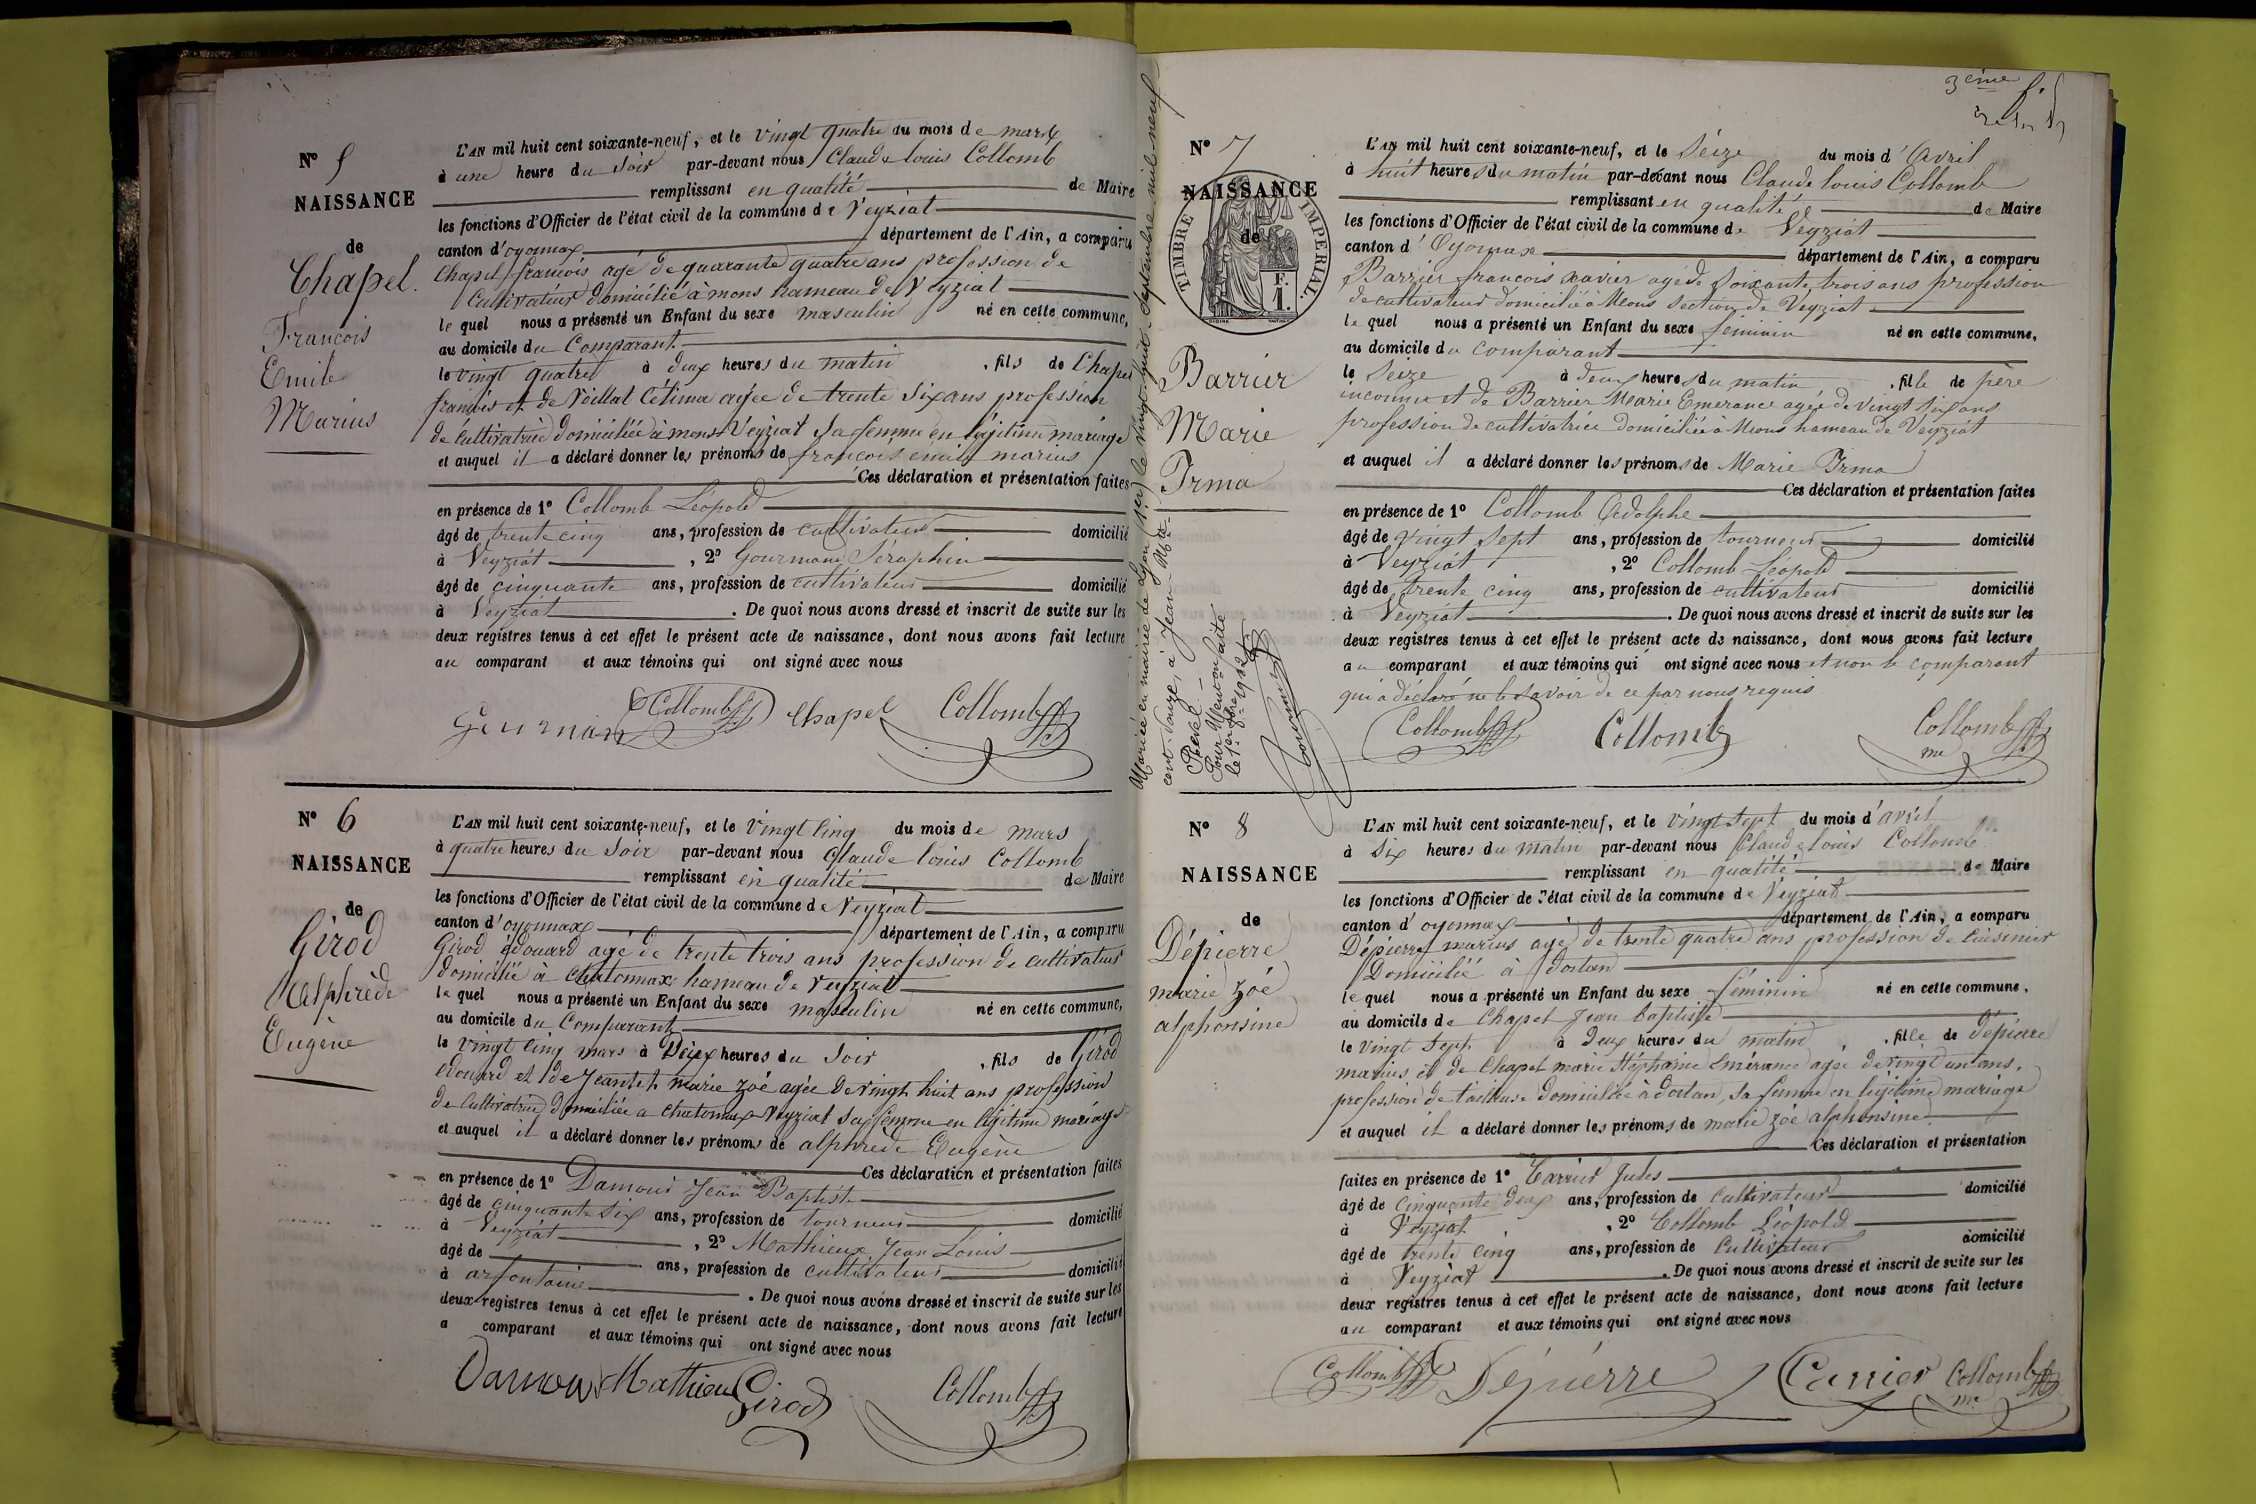 N° 5
NAISSANCE
de
Chapel
François
Emile
Marius
L'AN mil huit cent soixante-neuf, et le vingt quatre du mois de mars
à une heure du soir par-devant nous Claude louis Collomb
remplissant en qualité de Maire
les fonctions d'Officier de l'état civil de la commune de Veyziat
canton d'oyonnax département de l'Ain, a comparu
Chapel françois agé de quarante quatre ans profession de
Cultivateur domicilié à mons hameau de Veyziat
le quel nous a présenté un Enfant du sexe masculin né en cette commune,
au domicile du Comparant
le vingt quatre à deux heures du matin, fils de Chapel
françois et de Voillat Célima agée de trente six ans profession
de cultivatrice domiciliée à mons Veyziat sa femme en légitime mariage
et auquel il a déclaré donner les prénoms de françois emile marius
Ces déclaration et présentation faites
en présence de 1° Collomb Léopold
âgé de trente cinq ans, profession de cultivateur domicilié
à Veyziat, 2° Gourmand Séraphin
âgé de cinquante ans, profession de cultivateur domicilié
à Veyziat. De quoi nous avons dressé et inscrit de suite sur les
deux registres tenus à cet effet le présent acte de naissance, dont nous avons fait lecture
au comparant et aux témoins qui ont signé avec nous
Gourman Collomb Chapel Collomb
N° 6
NAISSANCE
de
Girod
alphrède
Eugène
L'AN mil huit cent soixante-neuf, et le vingt cinq du mois de mars
à quatre heures du soir par-devant nous Claude louis Collomb
remplissant en qualité de Maire
les fonctions d'Officier de l'état civil de la commune de Veyziat
canton d'oyonnax département de l'Ain, a comparu
Girod édouard agé de trente trois ans profession de cultivateur
domicilié à Chatonnax hameau de Veyziat
le quel nous a présenté un Enfant du sexe masculin né en cette commune,
au domicile du Comparant
le vingt cinq mars à Deux heures du soir, fils de Girod
édouard et de Jeantet marie zoé agée de vingt huit ans profession
de Cultivatrice domiciliée a chatonnax Veyziat sa femme en légitime mariage
et auquel il a déclaré donner les prénoms de alphrède Eugène
Ces déclaration et présentation faites
en présence de 1° Damour Jean Baptiste
âgé de cinquante six ans, profession de tourneur domicilié
à Veyziat, 2° Mathieu Jean Louis
âgé de ans, profession de cultivateur domicilié
à arfontaine. De quoi nous avons dressé et inscrit de suite sur les
deux registres tenus à cet effet le présent acte de naissance, dont nous avons fait lecture
a comparant et aux témoins qui ont signé avec nous
Damour Mathieu Girod Collomb
3ème f.
N° 7
NAISSANCE
de
TIMBRE IMPERIAL
1 F.
Barrier
Marie
Irma
Mariée en mairie de Lyon (1er) le vingt huit septembre mil neuf
cent douze, à Jean
Pour Mention faite
L'AN mil huit cent soixante-neuf, et le seize du mois d'Avril
à huit heures du matin par-devant nous Claude louis Collomb
remplissant en qualité de Maire
les fonctions d'Officier de l'état civil de la commune de Veyziat
canton d'Oyonnax département de l'Ain, a comparu
Barrier francois xavier agé de soixante trois ans profession
de cultivateur domicilié à Mons section de Veyziat
le quel nous a présenté un Enfant du sexe féminin né en cette commune,
au domicile du comparant
le Seize à deux heures du matin, fille de père
inconnu et de Barrier Marie Emerance agée de vingt six ans
profession de cultivatrice domiciliée à Mons hameau de Veyziat
et auquel il a déclaré donner les prénoms de Marie Irma
Ces déclaration et présentation faites
en présence de 1° Collomb Adolphe
âgé de vingt sept ans, profession de tourneur domicilié
à Veyziat, 2° Collomb Léopold
âgé de trente cinq ans, profession de cultivateur domicilié
à Veyziat. De quoi nous avons dressé et inscrit de suite sur les
deux registres tenus à cet effet le présent acte de naissance, dont nous avons fait lecture
au comparant et aux témoins qui ont signé avec nous et non le comparant
qui a déclaré ne le savoir de ce par nous requis
Collomb Collomb Collomb
me
N° 8
NAISSANCE
de
Dépierre
marie zoé
alphonsine
L'AN mil huit cent soixante-neuf, et le vingt sept du mois d'avril
à six heures du matin par-devant nous Claude louis Collomb
remplissant en qualité de Maire
les fonctions d'Officier de l'état civil de la commune de Veyziat
canton d'oyonnax département de l'Ain, a comparu
Dépierre marius agé de trente quatre ans profession de cuisinier
Domicilié à dortan
le quel nous a présenté un Enfant du sexe féminin né en cette commune,
au domicile de Chapel Jean baptiste
le vingt sept à deux heures du matin, fille de dépierre
marius et de Chapel marie Stéphanie émérance agée de vingt un ans,
profession de tailleuse domiciliée à dortan, sa femme en légitime mariage
et auquel il a déclaré donner les prénoms de marie zoé alphonsine
Ces déclaration et présentation
faites en présence de 1° Carrier Jules
âgé de cinquante deux ans, profession de cultivateur domicilié
à Veyziat, 2° Collomb Léopold
âgé de trente cinq ans, profession de Cultivateur domicilié
à Veyziat. De quoi nous avons dressé et inscrit de suite sur les
deux registres tenus à cet effet le présent acte de naissance, dont nous avons fait lecture
au comparant et aux témoins qui ont signé avec nous
Collomb Dépierre Carrier Collomb
me